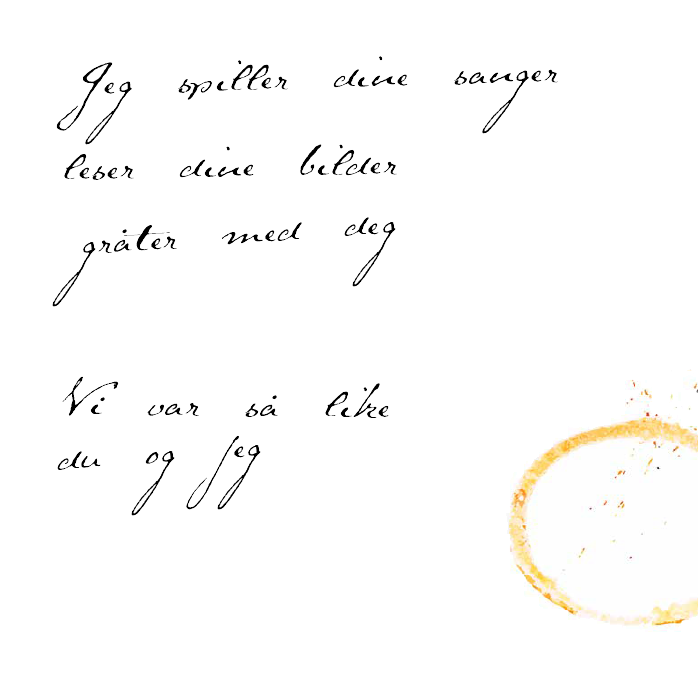 Jeg spiller dine sanger
leser dine bilder
gråter med deg
Vi var så like
du og jeg